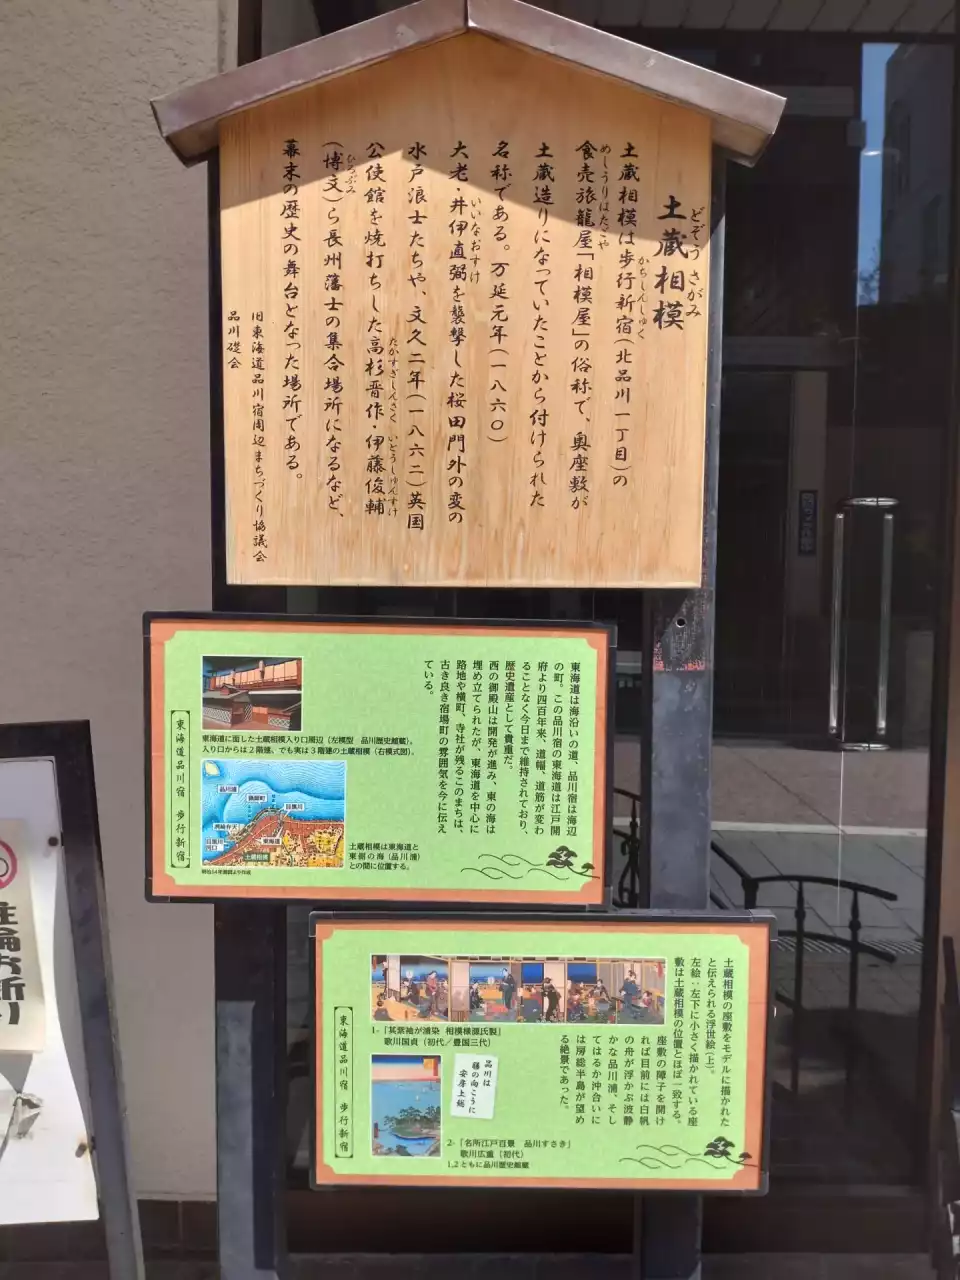 土蔵相模
どぞう さがみ
土蔵相模は歩行新宿(北品川一丁目)の
かちしんしゅく
食売旅籠屋「相模屋」の俗称で、奥座敷が
めしうりはたごや
土蔵造りになっていたことから付けられた
名称である。万延元年(一八六〇)
大老・井伊直弼を襲撃した桜田門外の変の
いいなおすけ
水戸浪士たちや、文久二年(一八六二)英国
公使館を焼打ちした高杉晋作・伊藤俊輔
たかすぎしんさく いとうしゅんすけ
(博文)ら長州藩士の集合場所になるなど、
ひろぶみ
幕末の歴史の舞台となった場所である。
旧東海道品川宿周辺まちづくり協議会
品川礎会
東海道は海沿いの道、品川宿は海辺
の町。この品川宿の東海道は江戸開
府より四百年来、道幅、道筋が変わ
ることなく今日まで維持されており、
歴史遺産として貴重だ。
西の御殿山は開発が進み、東の海は
埋め立てられたが、東海道を中心に
路地や横町、寺社が残るこのまちは、
古き良き宿場町の雰囲気を今に伝え
ている。
東海道に面した土蔵相模入り口周辺(左模型 品川歴史館蔵)。
入り口からは2階建、でも実は3階建の土蔵相模(右模式図)。
品川浦
猟師町
目黒川
洲崎弁天
目黒川
河口
東海道
土蔵相模
土蔵相模は東海道と
東側の海(品川浦)
との間に位置する。
東海道品川宿 歩行新宿
土蔵相模の座敷をモデルに描かれた
と伝えられる浮世絵(上)。
左絵:左下に小さく描かれている座
敷は土蔵相模の位置とほぼ一致する。
座敷の障子を開け
れば目前には白帆
の舟が浮かぶ波静
かな品川浦、そし
てはるか沖合いに
は房総半島が望め
る絶景であった。
1-「其紫袖が浦染 相模楼源氏製」
歌川国貞(初代/豊国三代)
品川は
膳の向こうに
安房上総
2-「名所江戸百景 品川すさき」
歌川広重(初代)
1,2ともに品川歴史館蔵
東海道品川宿 歩行新宿
駐輪お断り